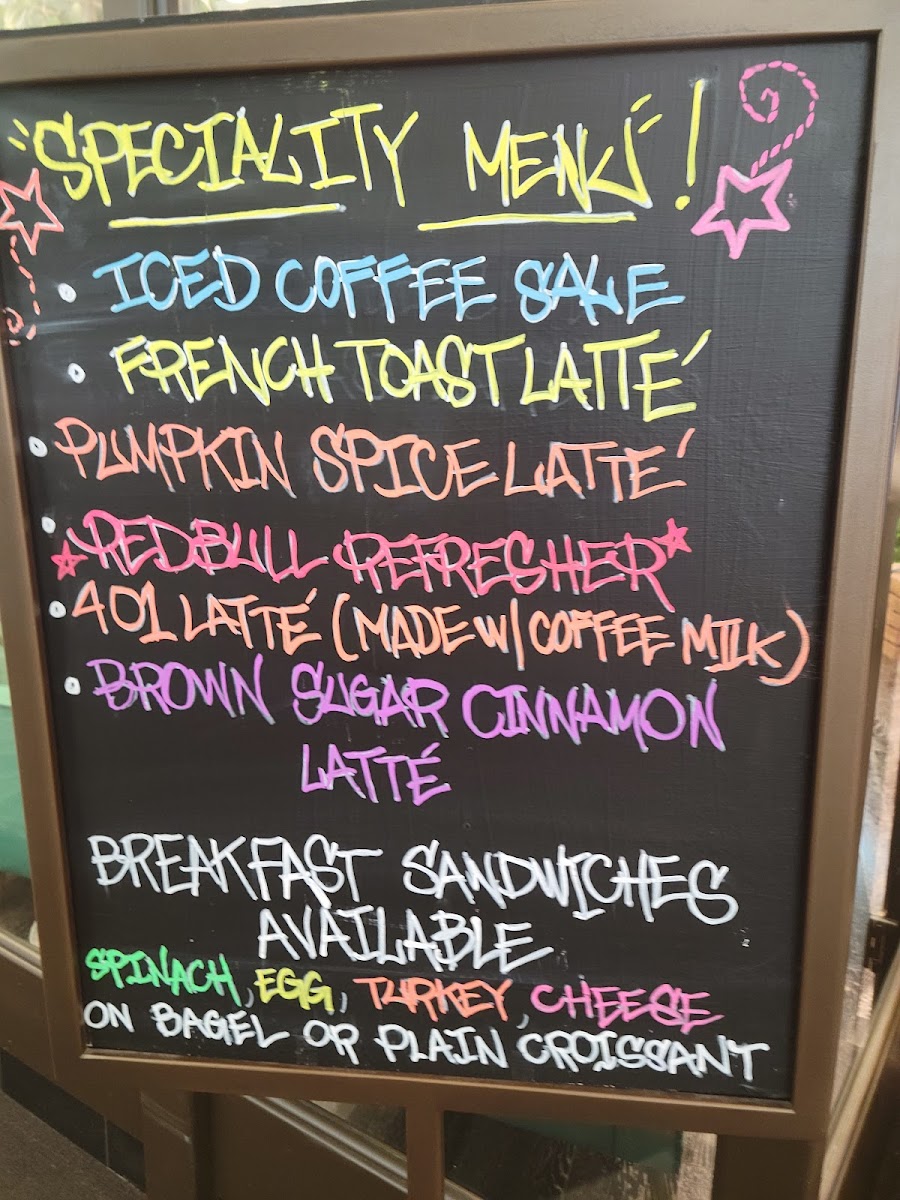 "SPECIALITY MENU"!
• ICED COFFEE SALE
• FRENCH TOAST LATTÉ
• PUMPKIN SPICE LATTÉ
• REDBULL REFRESHER
• 401 LATTÉ (MADE W/ COFFEE MILK)
• BROWN SUGAR CINNAMON
LATTÉ
BREAKFAST SANDWICHES
AVAILABLE
SPINACH, EGG, TURKEY, CHEESE
ON BAGEL OR PLAIN CROISSANT